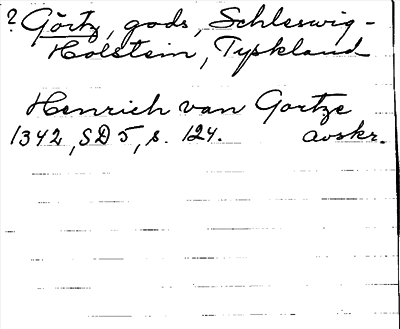 ? Görtz, gods, Schleswig-
Holstein, Tyskland
Henrich van Gortze
1342, SD 5, s. 124. avskr.